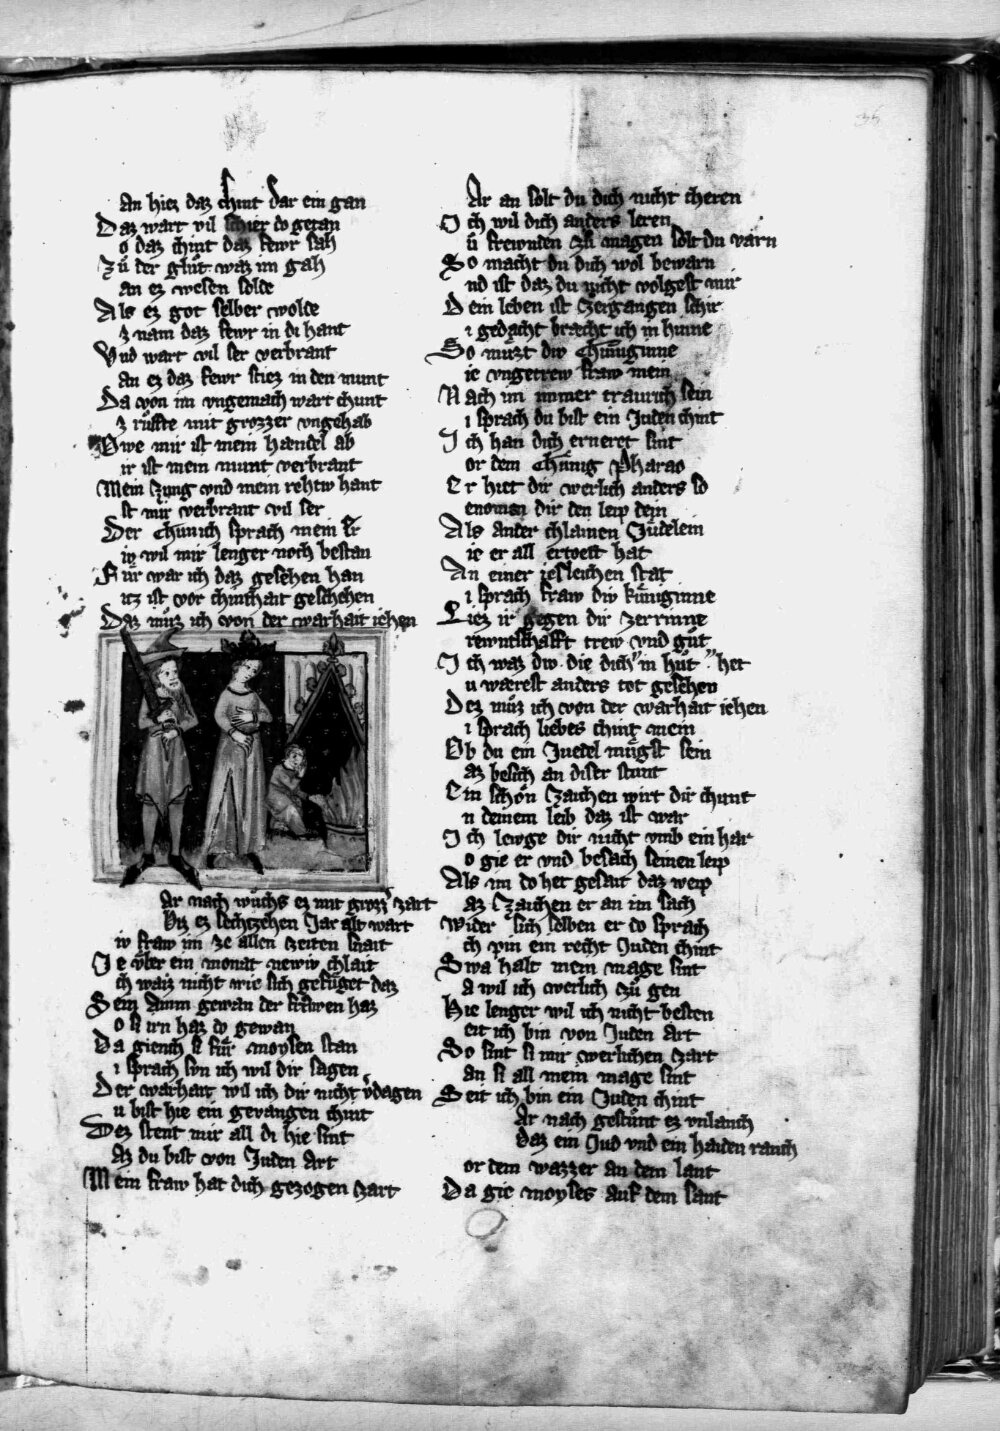 An hiez daz chint dar ein gan
Daz wart vil schier do getan
o daz chint daz fewr sah
Zů der glůt waz im gah
an ez wesen solde
Als ez got selber wolde
z nam daz fewr in di hant
Vnd wart vil ser verbrant
an ez daz fewr stiez in den munt
Da von im vngemach wart chunt
z růffte mit grozzer vngehab
Owe mir ist mein hændel ab
ir ist mein munt verbrant
Mein zung vnd mein rehtiv hant
st mir verbrant vil ser
Der chunich sprach mein er
iv wil mir lenger noch bestan
Fůr war ich daz gesehen han
itz ist vor chinthait geschehen
Daz můz ich von der warhait iehen
Ar nach wůchs ez mit grozz zart
Biz ez sechtzehen Jar alt wart
iv fraw im ze allen zeiten sait
Je vber ein monat newiv chlait
ch waiz nicht wie sich gefůget daz
Sein Amm gewan der frawen haz
o si irn haz do gewan
Da giench si fůr moysen stan
i sprach sůn ich wil dir sagen
Der warhait wil ich dir nicht v̓dagen
u bist hie ein gevangen chint
Wez stent mir all di hie sint
Az du bist von Juden Art
Mein fraw hat dich gezogen zart
Ar an solt du dich nicht cheren
Ich wil dich anders leren
ů frewnden zů magen solt du varn
So macht du dich wol bewarn
nd ist daz du nicht volgest mir
Dein leben ist zergangen schir
i gedacht bræcht ich in hinne
So můzt div chůniginne
ie vngetrew fraw mein
Nach im immer traurich sein
i sprach du bist ein Juden chint
Ich han dich erneret sint
or dem chůnig Pharao
Er hiet dir werlich anders so
enomen dir den leip dein
Als ander chlainen Jůdelein
ie er all ertoett hat
An einer iesleichen stat
i sprach fraw div kůniginne
Liez ir gegen dir zerrinne
rewntschafft trew vnd gůt
Ich waz div die dich in hůt het
u wærest anders tot gesehen
Dez můz ich von der warhait iehen
i sprach liebes chint mein
Ob du ein Juedel můgst sein
az besich an diser stunt
Ein schön zaichen wirt dir chunt
n deinem leib daz ist war
Ich lewge dir nicht vmb ein har
o gie er vnd besach seinen leip
Als im do het gesait daz weip
az zaichen er an im sach
Wider sich selben er do sprach
ch pin ein recht Juden chint
Swa halt mein mage sint
a wil ich werlich zů gen
Hie lenger wil ich nicht besten
eit ich bin von Juden Art
So sint si mir werlichen zart
an si all mein mage sint
Seit ich bin ein Juden chint
Ar nach gestůnt ez vnlanch
Daz ein Jud vnd ein haiden ranch
or dem wazzer an dem lant
Da gie moyses auf dem sant